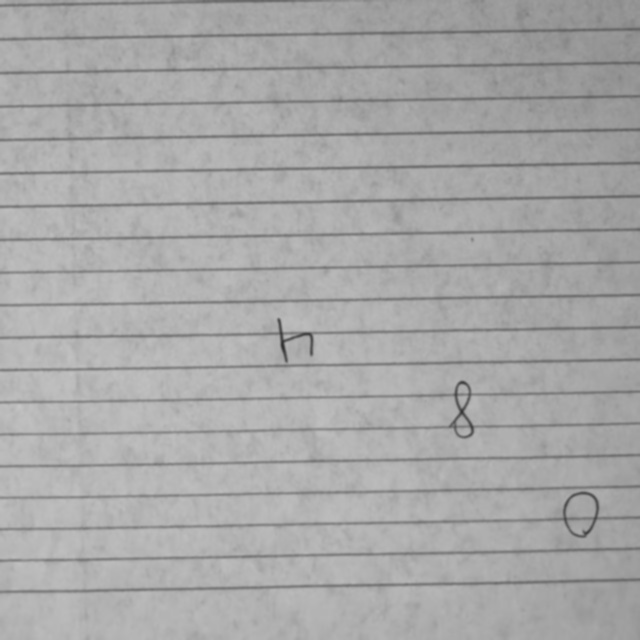 h
8
0